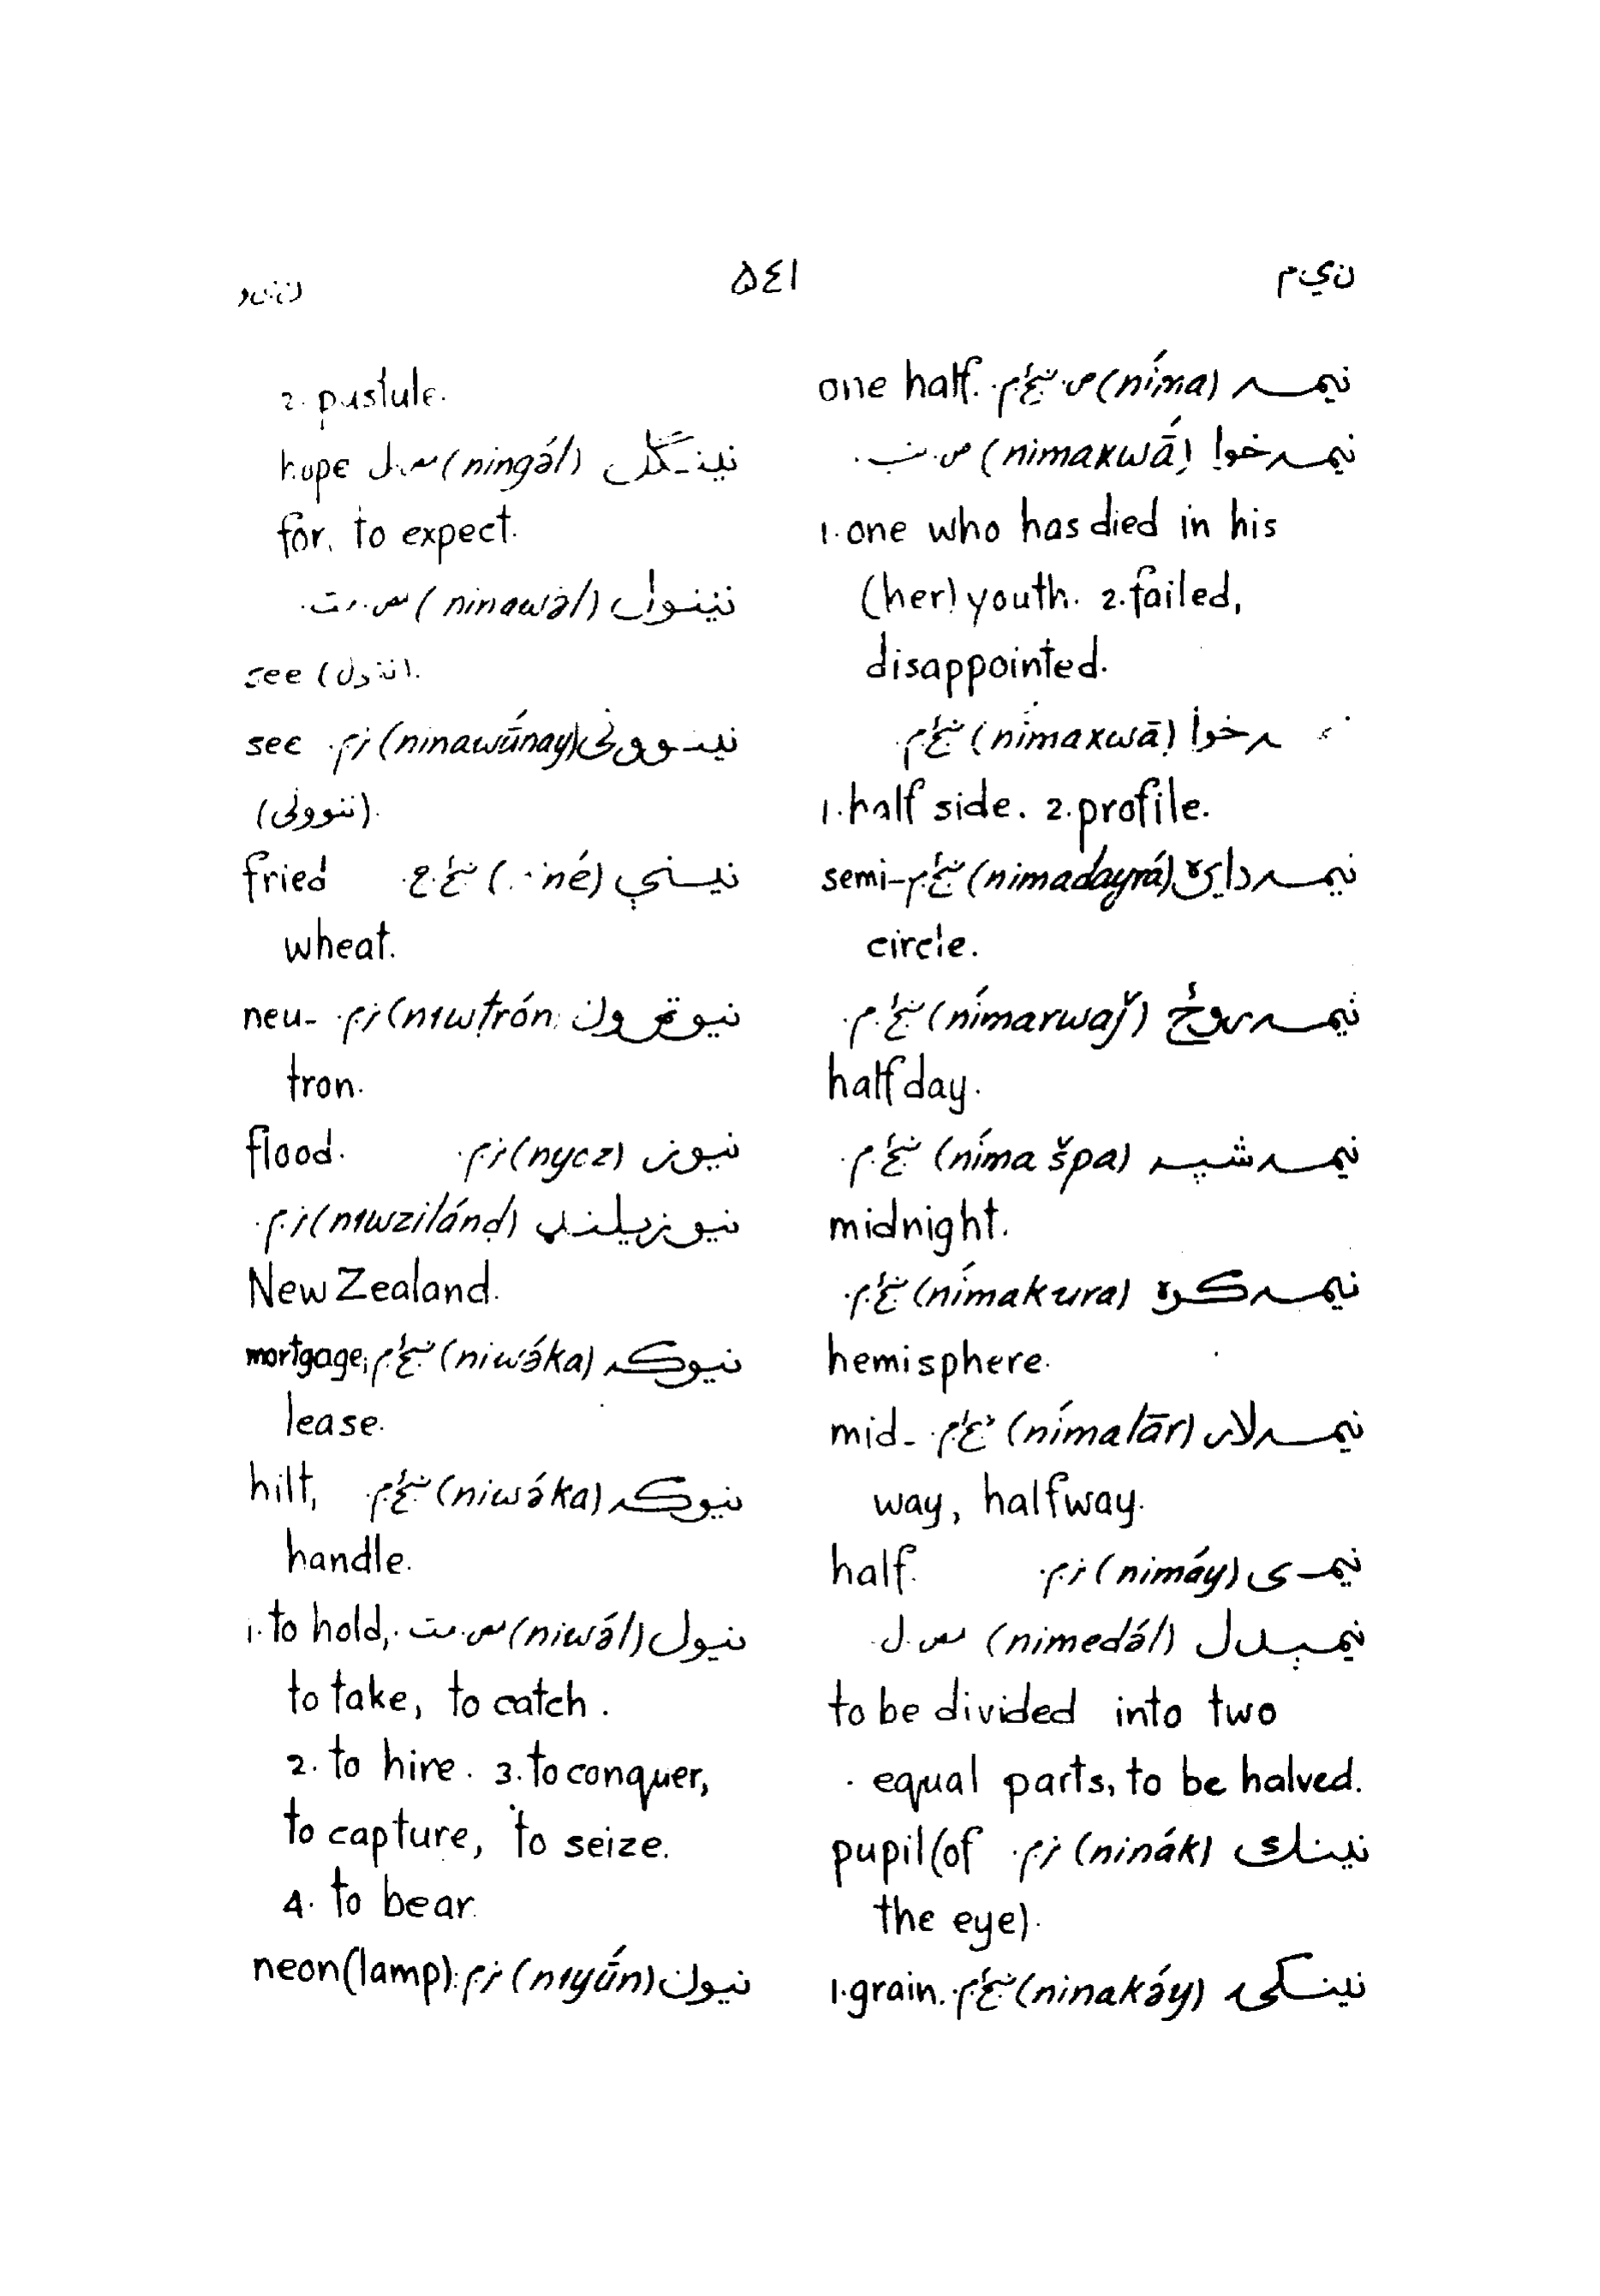 نیم
۵٤۱
نیمه (níma) ص. ښځ.م. one half.
نیمه خوا (nimaxwā́) ص.
1. one who has died in his
(her) youth. 2. failed,
disappointed.
خوا (nímaxwā) ښځ.م.
1. half side. 2. profile.
نیمه دایره (nimadayrá) ښځ.م. semi-
circle.
نیمه روځ (nímarwaǰ) ښځ.م.
half day.
نیمه شپه (níma špa) ښځ.م.
midnight.
نیمه کره (nímakura) ښځ.م.
hemisphere.
نیمه لار (nímalār) ښځ.م. mid-
way, halfway.
نیمی (nimáy) نر.م. half.
نیمېدل (nimedə́l) مص.ل.
to be divided into two
equal parts, to be halved.
نینک (ninák) نر.م. pupil (of
the eye).
نینکۍ (ninakə́y) ښځ.م. 1. grain.
2. pustule.
نینګل (ningə́l) مص.ل. hope
for, to expect.
نینول (ninawə́l) مص.مت.
see (ننول).
نینوونی (ninawū́nay) نر.م. see
(ننوونی).
نینې (né) ښځ.ج. fried
wheat.
نیوټرون (niwṭrón) نر.م. neu-
tron.
نیوز (nyoz) نر.م. flood.
نیوزیلنډ (niwzilánḍ) نر.م.
New Zealand.
نیوکه (niwə́ka) ښځ.م. mortgage;
lease.
نیوکه (niwə́ka) ښځ.م. hilt,
handle.
نیول (niwə́l) مص.مت. 1. to hold,
to take, to catch.
2. to hire. 3. to conquer,
to capture, to seize.
4. to bear.
نیون (niyū́n) نر.م. neon (lamp).